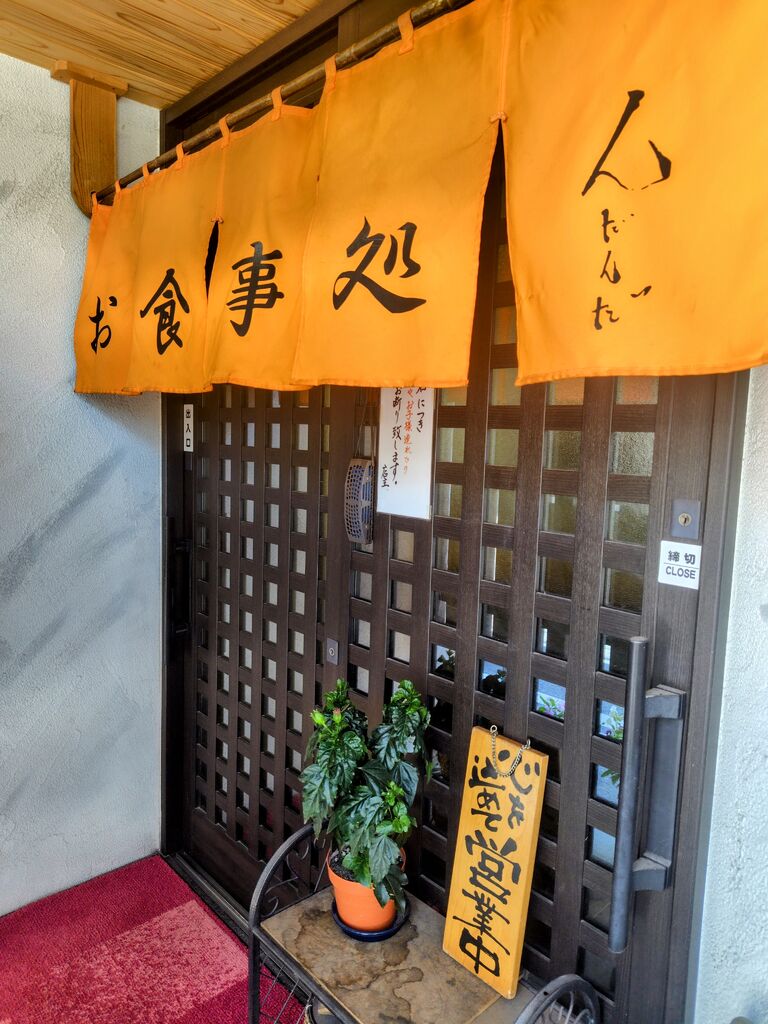 お食事処
んだんだ
出入口
につき
お子様連れ
お断り致します。
店主
締切
CLOSE
心を
込めて
営業中